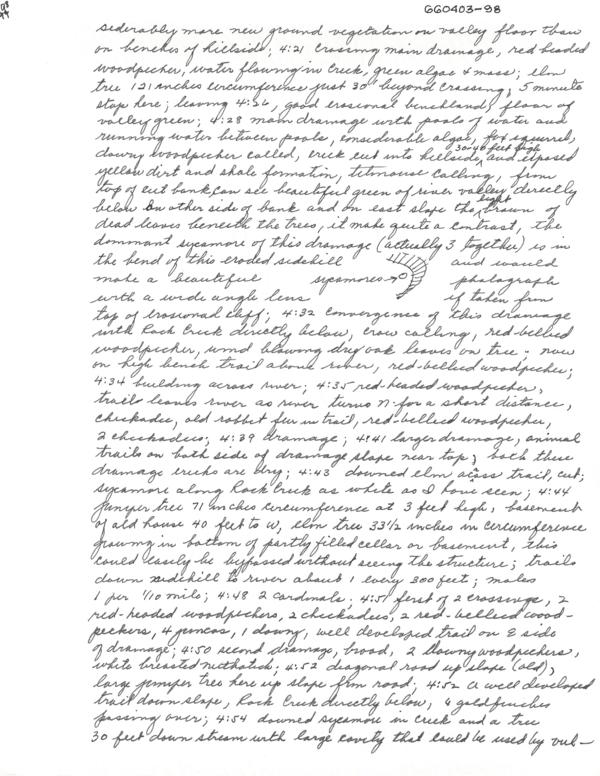 GG0403-98
siderably more new ground vegetation on valley floor than
on benches of hillside; 4:21 crossing main drainage, red-headed
woodpecker, water flowing in creek, green algae & moss; elm
tree 121 inches circumference just 30' beyond crossing, 5 minute
stop here; leaving 4:26, good erosional benchland, floor of
valley green; 4:28 main drainage with pools of water and
running water between pools, considerable algae, fox squirrel,
downy woodpecker called, creek cut into hillside 30-40 feet high and exposed
yellow dirt and shale formation, titmouse calling, from
top of cut bank can see beautiful green of river valley directly
below on other side of bank and on east slope the light brown of
dead leaves beneath the trees, it make quite a contrast, the
dominant sycamore of this drainage (actually 3 together) is in
the bend of this eroded sidehill and would
make a beautiful sycamores→ photograph
with a wide angle lens if taken from
top of erosional cliff; 4:32 convergence of this drainage
with Rock Creek directly below, crow calling, red-bellied
woodpecker, wind blowing dry oak leaves on tree; now
on high bench trail above river, red-bellied woodpecker;
4:34 building across river; 4:35 red-headed woodpecker,
trail leaves river as river turns N. for a short distance,
chickadee, old rabbit fur in trail, red-bellied woodpecker,
2 chickadees; 4:39 drainage; 4:41 larger drainage, animal
trails on both side of drainage slope near top; both these
drainage creeks are dry; 4:43 downed elm across trail, cut;
sycamore along Rock Creek as white as I have seen; 4:44
juniper tree 71 inches circumference at 3 feet high, basement
of old house 40 feet to W, elm tree 33 1/2 inches in circumference
growing in bottom of partly filled cellar or basement, this
could easily be bypassed without seeing the structure; trails
down sidehill to river about 1 every 300 feet; moles
1 per 1/10 mile; 4:48 2 cardinals. 4:51 first of 2 crossings, 2
red-headed woodpeckers, 2 chickadees, 2 red-bellied wood-
peckers, 4 juncos, 1 downy, well developed trail on E side
of drainage; 4:50 second drainage, broad, 2 Downy woodpeckers,
white breasted nuthatch; 4:52 diagonal road up slope (old),
large juniper tree here up slope from road; 4:52 a well developed
trail down slope, Rock Creek directly below, 6 goldfinches
passing over; 4:54 downed sycamore in creek and a tree
30 feet down stream with large cavity that could be used by vul-